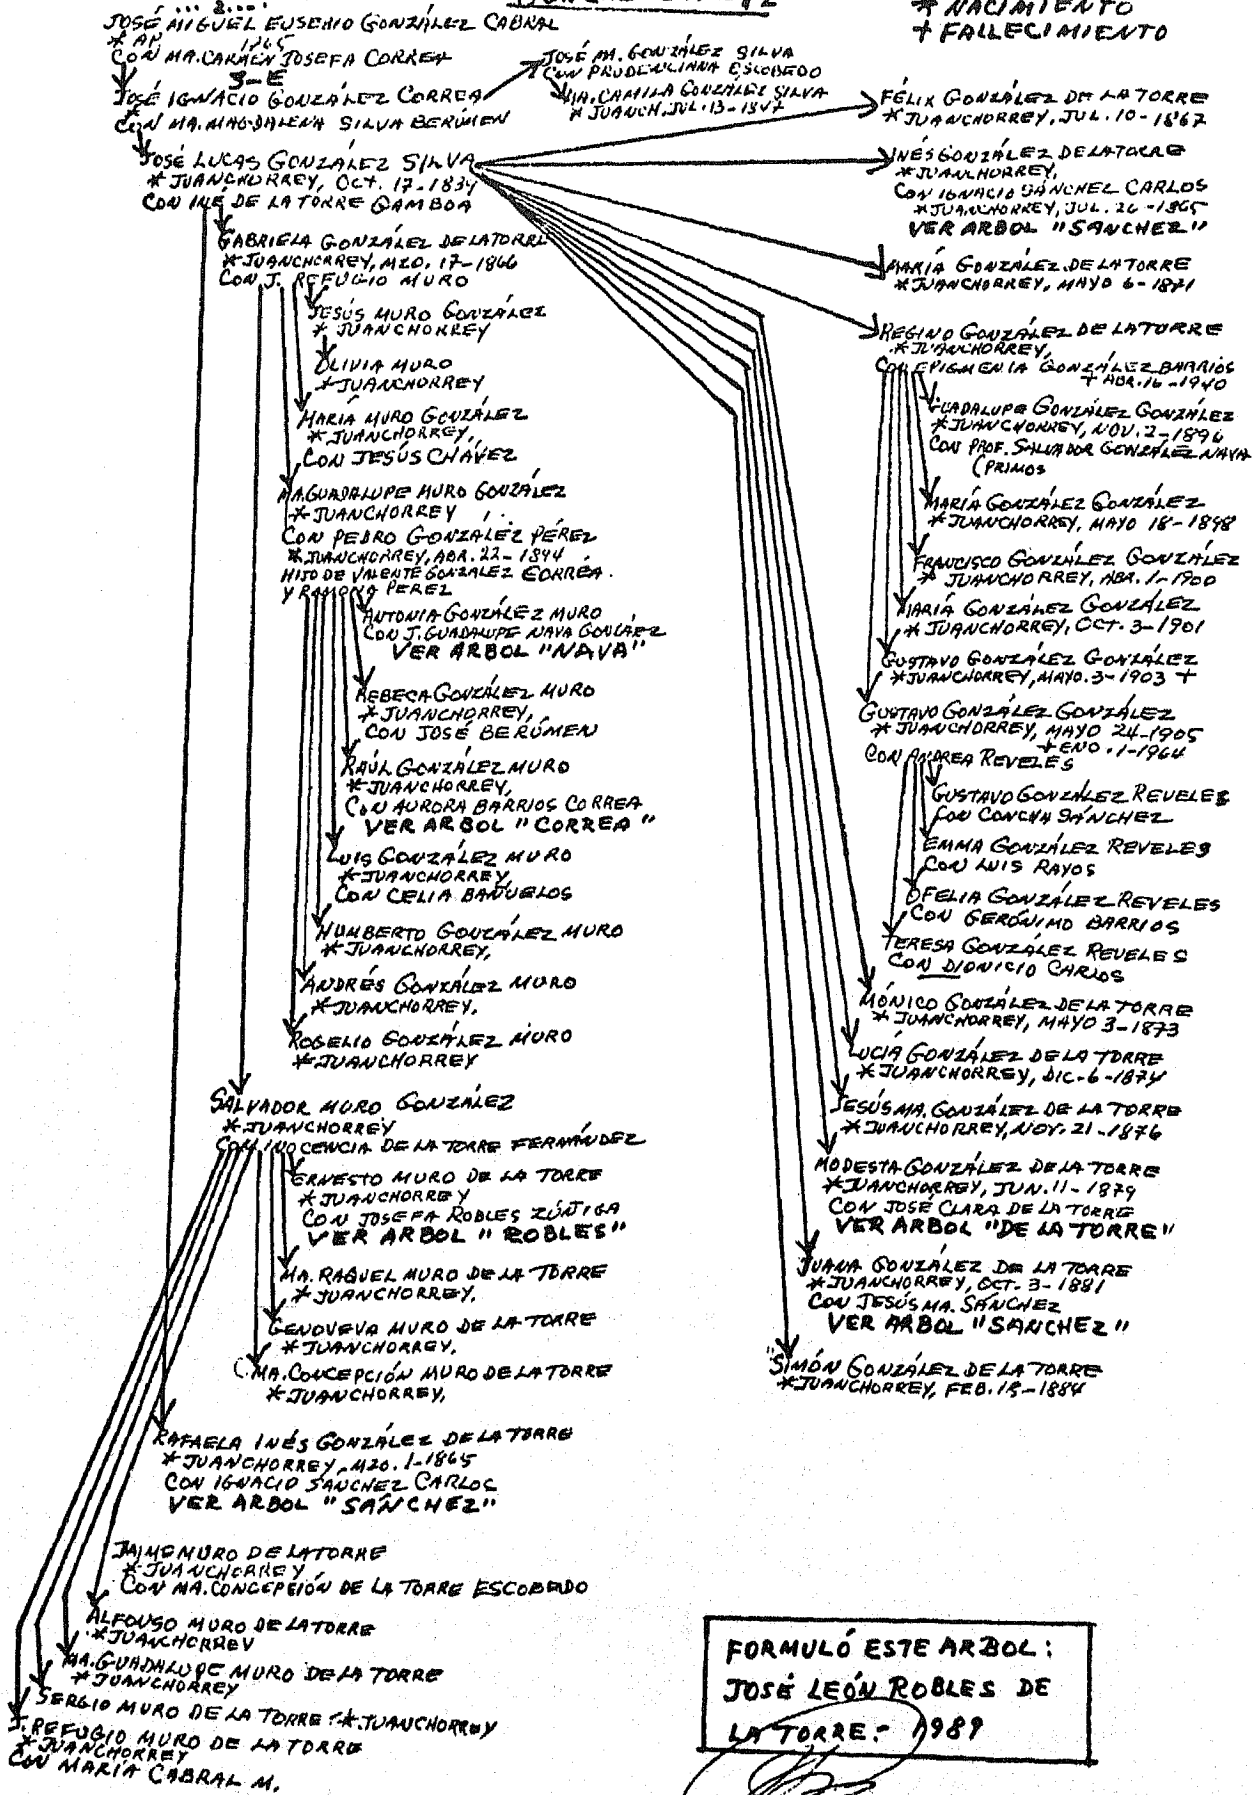 * NACIMIENTO
+ FALLECIMIENTO
JOSÉ MIGUEL EUSEBIO GONZÁLEZ CABRAL
CON MA. CARMEN JOSEFA CORREA
3-E
JOSÉ IGNACIO GONZÁLEZ CORREA
CON MA. MAGDALENA SILVA BERUMEN
JOSÉ MA. GONZÁLEZ SILVA
CON PRUDENCIANA ESCOBEDO
MA. CAMILA GONZÁLEZ SILVA
* JUANCH. JUL. 13-1847
JOSÉ LUCAS GONZÁLEZ SILVA
* JUANCHORREY, OCT. 17-1834
CON INÉ DE LA TORRE GAMBOA
GABRIELA GONZÁLEZ DE LA TORRE
* JUANCHORREY, MZO. 17-1866
CON J. REFUGIO MURO
JESÚS MURO GONZÁLEZ
* JUANCHORREY
OLIVIA MURO
* JUANCHORREY
MARÍA MURO GONZÁLEZ
* JUANCHORREY,
CON JESÚS CHÁVEZ
MA. GUADALUPE MURO GONZÁLEZ
* JUANCHORREY
CON PEDRO GONZÁLEZ PÉREZ
* JUANCHORREY, ABR. 22-1894
HIJO DE VALENTE GONZALEZ CORREA.
Y RAMONA PEREZ
ANTONIA GONZÁLEZ MURO
CON J. GUADALUPE NAVA GONZÁLEZ
VER ARBOL "NAVA"
REBECA GONZÁLEZ MURO
* JUANCHORREY,
CON JOSÉ BERÚMEN
RAÚL GONZÁLEZ MURO
* JUANCHORREY,
CON AURORA BARRIOS CORREA
VER ARBOL "CORREA"
LUIS GONZÁLEZ MURO
* JUANCHORREY,
CON CELIA BAÑUELOS
HUMBERTO GONZÁLEZ MURO
* JUANCHORREY,
ANDRÉS GONZÁLEZ MURO
* JUANCHORREY.
ROGELIO GONZÁLEZ MURO
* JUANCHORREY
SALVADOR MURO GONZÁLEZ
* JUANCHORREY
CON INOCENCIA DE LA TORRE FERNÁNDEZ
ERNESTO MURO DE LA TORRE
* JUANCHORREY
CON JOSEFA ROBLES ZÚÑIGA
VER ARBOL "ROBLES"
MA. RAQUEL MURO DE LA TORRE
* JUANCHORREY,
GENOVEVA MURO DE LA TORRE
* JUANCHORREY.
MA. CONCEPCIÓN MURO DE LA TORRE
* JUANCHORREY,
RAFAELA INÉS GONZÁLEZ DE LA TORRE
* JUANCHORREY, MZO. 1-1865
CON IGNACIO SÁNCHEZ CARLOS
VER ARBOL "SANCHEZ"
JAIME MURO DE LA TORRE
* JUANCHORREY
CON MA. CONCEPCIÓN DE LA TORRE ESCOBEDO
ALFONSO MURO DE LA TORRE
* JUANCHORREY
MA. GUADALUPE MURO DE LA TORRE
* JUANCHORREY
SERGIO MURO DE LA TORRE. * JUANCHORREY
J. REFUGIO MURO DE LA TORRE
* JUANCHORREY
CON MARÍA CABRAL M.
FÉLIX GONZÁLEZ DE LA TORRE
* JUANCHORREY, JUL. 10-1867
INÉS GONZÁLEZ DE LA TORRE
* JUANCHORREY,
CON IGNACIO SÁNCHEZ CARLOS
* JUANCHORREY, JUL. 26-1865
VER ARBOL "SANCHEZ"
MARÍA GONZÁLEZ DE LA TORRE
* JUANCHORREY, MAYO 6-1871
REGINO GONZÁLEZ DE LA TORRE
* JUANCHORREY,
CON EPIGMENIA GONZÁLEZ BARRIOS
+ ABR. 16-1940
GUADALUPE GONZÁLEZ GONZÁLEZ
* JUANCHORREY, NOV. 2-1896
CON PROF. SALVADOR GONZÁLEZ NAVA
(PRIMOS
MARÍA GONZÁLEZ GONZÁLEZ
* JUANCHORREY, MAYO 18-1898
FRANCISCO GONZÁLEZ GONZÁLEZ
* JUANCHORREY, ABR. 1-1900
MARÍA GONZÁLEZ GONZÁLEZ
* JUANCHORREY, OCT. 3-1901
GUSTAVO GONZÁLEZ GONZÁLEZ
* JUANCHORREY, MAYO. 3-1903 +
GUSTAVO GONZÁLEZ GONZÁLEZ
* JUANCHORREY, MAYO 24-1905
+ ENO. 1-1964
CON ANDREA REVELES
GUSTAVO GONZÁLEZ REVELES
CON CONCHA SÁNCHEZ
EMMA GONZÁLEZ REVELES
CON LUIS RAYOS
OFELIA GONZÁLEZ REVELES
CON GERÓNIMO BARRIOS
TERESA GONZÁLEZ REVELES
CON DIONICIO CARLOS
MÓNICO GONZÁLEZ DE LA TORRE
* JUANCHORREY, MAYO 3-1873
LUCÍA GONZÁLEZ DE LA TORRE
* JUANCHORREY, DIC-6-1874
JESÚS MA. GONZÁLEZ DE LA TORRE
* JUANCHORREY, NOV. 21-1876
MODESTA GONZÁLEZ DE LA TORRE
* JUANCHORREY, JUN. 11-1879
CON JOSÉ CLARA DE LA TORRE
VER ARBOL "DE LA TORRE"
JUANA GONZÁLEZ DE LA TORRE
* JUANCHORREY, OCT. 3-1881
CON JESÚS MA. SÁNCHEZ
VER ARBOL "SANCHEZ"
SIMÓN GONZÁLEZ DE LA TORRE
* JUANCHORREY, FEB. 18-1884
FORMULÓ ESTE ARBOL:
JOSÉ LEÓN ROBLES DE
LA TORRE.- 1989